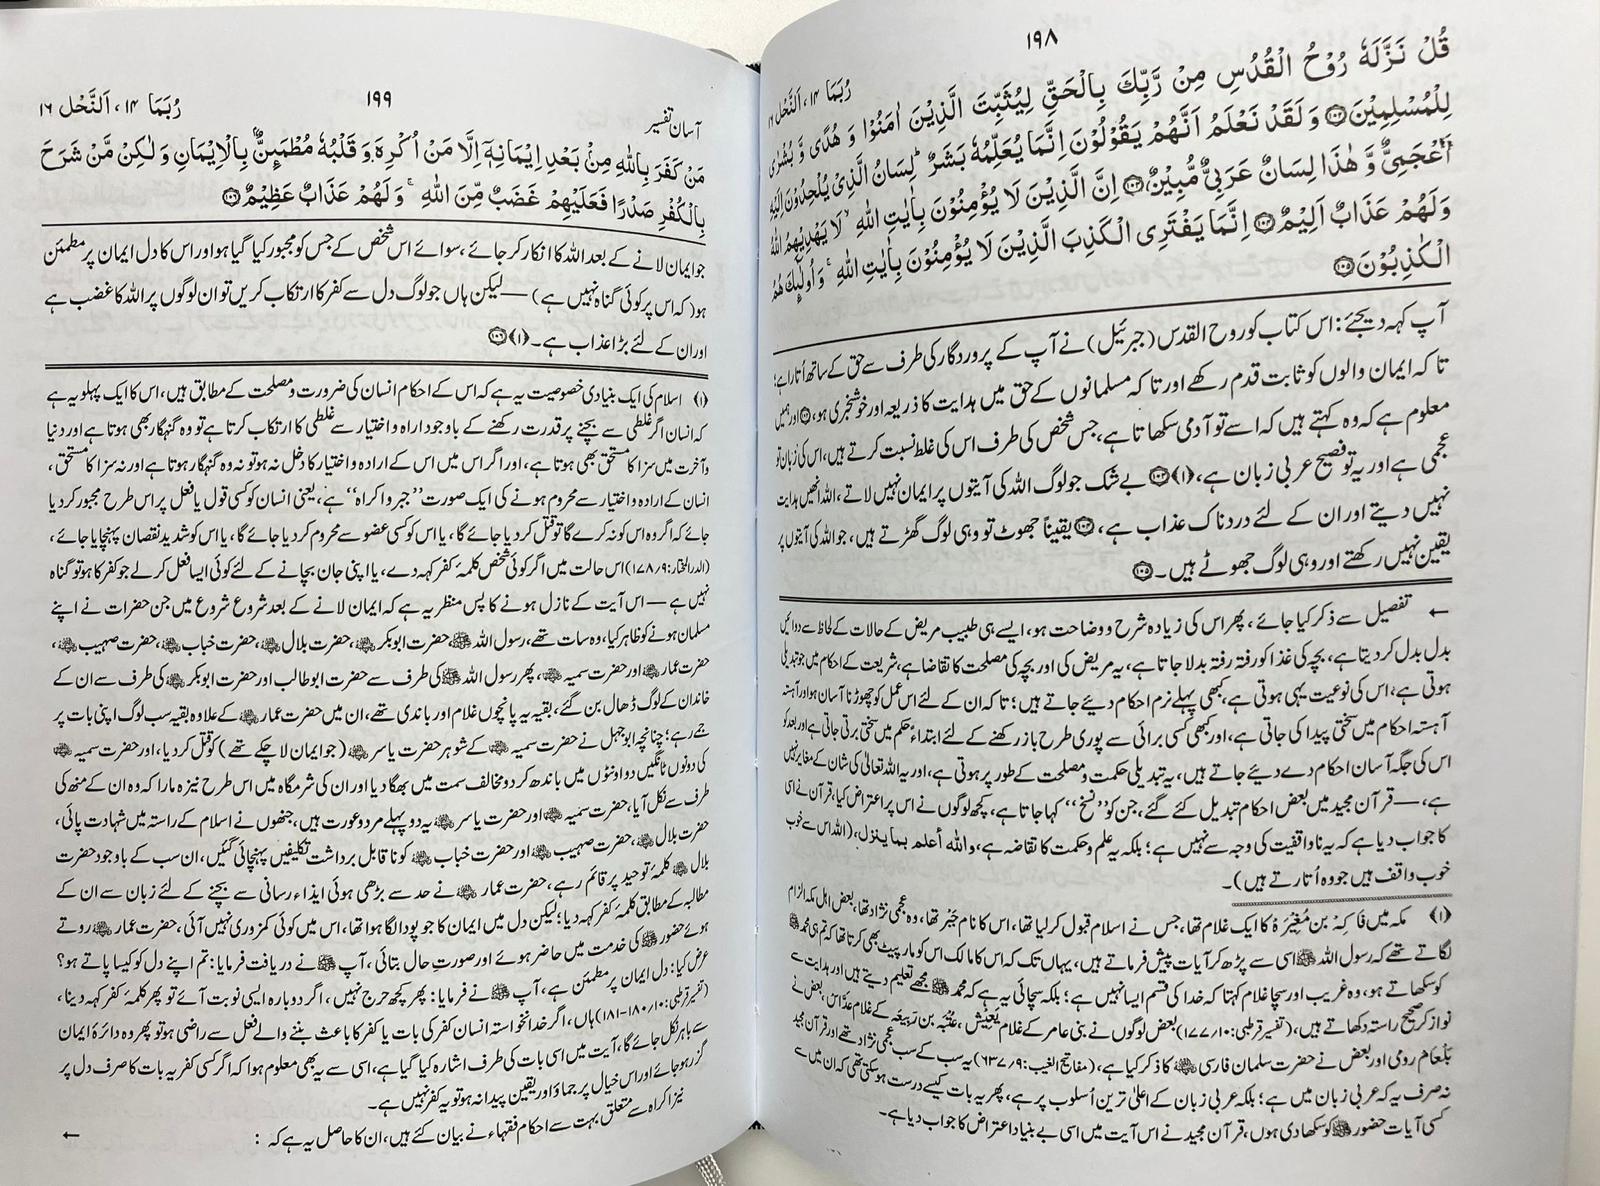 ۱۹۸
رُبَمَا ۱۴، اَلنَّحْل ۱۶
قُلْ نَزَّلَهٗ رُوْحُ الْقُدُسِ مِنْ رَّبِّكَ بِالْحَقِّ لِيُثَبِّتَ الَّذِيْنَ اٰمَنُوْا وَ هُدًى وَّ بُشْرٰى
لِلْمُسْلِمِيْنَ۝۱۰۲ وَ لَقَدْ نَعْلَمُ اَنَّهُمْ يَقُوْلُوْنَ اِنَّمَا يُعَلِّمُهٗ بَشَرٌ ؕ لِسَانُ الَّذِيْ يُلْحِدُوْنَ اِلَيْهِ
اَعْجَمِيٌّ وَّ هٰذَا لِسَانٌ عَرَبِيٌّ مُّبِيْنٌ۝۱۰۳ اِنَّ الَّذِيْنَ لَا يُؤْمِنُوْنَ بِاٰيٰتِ اللّٰهِ ۙ لَا يَهْدِيْهِمُ اللّٰهُ
وَ لَهُمْ عَذَابٌ اَلِيْمٌ۝۱۰۴ اِنَّمَا يَفْتَرِى الْكَذِبَ الَّذِيْنَ لَا يُؤْمِنُوْنَ بِاٰيٰتِ اللّٰهِ ۚ وَ اُولٰٓىِٕكَ هُمُ
الْكٰذِبُوْنَ۝۱۰۵
آپ کہہ دیجئے : اس کتاب کو روح القدس (جبرئیل) نے آپ کے پروردگار کی طرف سے حق کے ساتھ اُتارا ہے؛
تا کہ ایمان والوں کو ثابت قدم رکھے اور تا کہ مسلمانوں کے حق میں ہدایت کا ذریعہ اور خوشخبری ہو، ۝۱۰۲ اور ہمیں
معلوم ہے کہ وہ کہتے ہیں کہ اسے تو آدمی سکھاتا ہے، جس شخص کی طرف اس کی غلط نسبت کرتے ہیں، اس کی زبان تو
عجمی ہے اور یہ تو فصیح عربی زبان ہے، (۱) ۝۱۰۳ بے شک جو لوگ اللہ کی آیتوں پر ایمان نہیں لاتے، اللہ انھیں ہدایت
نہیں دیتے اور ان کے لئے دردناک عذاب ہے، ۝۱۰۴ یقیناً جھوٹ تو وہی لوگ گھڑتے ہیں، جو اللہ کی آیتوں پر
یقین نہیں رکھتے اور وہی لوگ جھوٹے ہیں۔ ۝۱۰۵
← تفصیل سے ذکر کیا جائے، پھر اس کی زیادہ شرح و وضاحت ہو، ایسے ہی طبیب مریض کے حالات کے لحاظ سے دوائیں
بدل بدل کر دیتا ہے، بچہ کی غذا کو رفتہ رفتہ بدلا جاتا ہے، یہ مریض کی اور بچہ کی مصلحت کا تقاضا ہے، شریعت کے احکام میں جو تبدیلی
ہوتی ہے، اس کی نوعیت یہی ہوتی ہے، کبھی پہلے نرم احکام دیئے جاتے ہیں؛ تا کہ ان کے لئے اس عمل کو چھوڑنا آسان ہو اور آہستہ
آہستہ احکام میں سختی پیدا کی جاتی ہے، اور کبھی کسی برائی سے پوری طرح باز رکھنے کے لئے ابتداءً حکم میں سختی برتی جاتی ہے اور بعد کو
اس کی جگہ آسان احکام دے دیئے جاتے ہیں، یہ تبدیلی حکمت و مصلحت کے طور پر ہوتی ہے، اور یہ اللہ تعالیٰ کی شان کے مغایر نہیں
ہے، — قرآن مجید میں بعض احکام تبدیل کئے گئے، جن کو ’’نسخ‘‘ کہا جاتا ہے، کچھ لوگوں نے اس پر اعتراض کیا، قرآن نے اسی
کا جواب دیا ہے کہ یہ ناواقفیت کی وجہ سے نہیں ہے؛ بلکہ یہ علم و حکمت کا تقاضہ ہے، والله أعلم بما ينزل، (اللہ اس سے خوب
خوب واقف ہیں جو وہ اُتارتے ہیں)۔
(۱) مکہ میں فَاکِہ بن مُغِیْرَہ کا ایک غلام تھا، جس نے اسلام قبول کر لیا تھا، اس کا نام جَبْر تھا، وہ عجمی نژاد تھا، بعض اہل مکہ الزام
لگاتے تھے کہ رسول اللہ ﷺ اسی سے پڑھ کر آیات پیش فرماتے ہیں، یہاں تک کہ اس کا مالک اس کو مار پیٹ بھی کرتا تھا کہ تم ہی محمد ﷺ
کو سکھاتے ہو، وہ غریب اور سچا غلام کہتا کہ خدا کی قسم ایسا نہیں ہے؛ بلکہ سچائی یہ ہے کہ محمد ﷺ مجھے تعلیم دیتے ہیں اور ہدایت سے
نواز کر صحیح راستہ دکھاتے ہیں، (تفسیر قرطبی: ۱۰؍۱۷۷) بعض لوگوں نے بنی عامر کے غلام یَعِیْش، عُتْبَہ بن رَبِیعہ کے غلام عَدَّاس، بعض نے
بَلْعَام رومی اور بعض نے حضرت سلمان فارسی ؓ کا ذکر کیا ہے، (مفاتیح الغیب: ۹؍۶۳۷) یہ سب کے سب عجمی نژاد تھے اور قرآن مجید
نہ صرف یہ کہ عربی زبان میں ہے؛ بلکہ عربی زبان کے اعلیٰ ترین اُسلوب پر ہے، پھر یہ بات کیسے درست ہو سکتی تھی کہ ان میں سے
کسی آیات حضور ﷺ کو سکھا دی ہوں، قرآن مجید نے اس آیت میں اسی بے بنیاد اعتراض کا جواب دیا ہے۔
آسان تفسیر
۱۹۹
رُبَمَا ۱۴، اَلنَّحْل ۱۶
مَنْ كَفَرَ بِاللّٰهِ مِنْۢ بَعْدِ اِيْمَانِهٖۤ اِلَّا مَنْ اُكْرِهَ وَ قَلْبُهٗ مُطْمَىِٕنٌّۢ بِالْاِيْمَانِ وَ لٰكِنْ مَّنْ شَرَحَ
بِالْكُفْرِ صَدْرًا فَعَلَيْهِمْ غَضَبٌ مِّنَ اللّٰهِ ۚ وَ لَهُمْ عَذَابٌ عَظِيْمٌ۝۱۰۶
جو ایمان لانے کے بعد اللہ کا انکار کر جائے، سوائے اس شخص کے جس کو مجبور کیا گیا ہو اور اس کا دل ایمان پر مطمئن
ہو( کہ اس پر کوئی گناہ نہیں ہے) — لیکن ہاں جو لوگ دل سے کفر کا ارتکاب کریں تو ان لوگوں پر اللہ کا غضب ہے
اور ان کے لئے بڑا عذاب ہے۔ (۱) ۝۱۰۶
(۱) اسلام کی ایک بنیادی خصوصیت یہ ہے کہ اس کے احکام انسان کی ضرورت و مصلحت کے مطابق ہیں، اس کا ایک پہلو یہ ہے
کہ انسان اگر غلطی سے بچنے پر قدرت رکھنے کے باوجود اراہ و اختیار سے غلطی کا ارتکاب کرتا ہے تو وہ گنہگار بھی ہوتا ہے اور دنیا
و آخرت میں سزا کا مستحق بھی ہوتا ہے، اور اگر اس میں اس کے ارادہ و اختیار کا دخل نہ ہو تو نہ وہ گنہگار ہوتا ہے اور نہ سزا کا مستحق،
انسان کے ارادہ و اختیار سے محروم ہونے کی ایک صورت ’’جبر و اکراہ‘‘ ہے، یعنی انسان کو کسی قول یا فعل پر اس طرح مجبور کر دیا
جائے کہ اگر وہ اس کو نہ کرے گا تو قتل کر دیا جائے گا، یا اس کو کسی عضو سے محروم کر دیا جائے گا، یا اس کو شدید نقصان پہنچایا جائے،
(الدر المختار: ۹؍۱۷۸) اس حالت میں اگر کوئی شخص کلمۂ کفر کہہ دے، یا اپنی جان بچانے کے لئے کوئی ایسا فعل کر لے جو کفر کا ہو تو گناہ
نہیں ہے — اس آیت کے نازل ہونے کا پس منظر یہ ہے کہ ایمان لانے کے بعد شروع شروع میں جن حضرات نے اپنے
مسلمان ہونے کو ظاہر کیا، وہ سات تھے، رسول اللہ ﷺ، حضرت ابوبکر ؓ، حضرت بلال ؓ، حضرت خباب ؓ، حضرت صہیب ؓ،
حضرت عمار ؓ اور حضرت سمیہ ؓ، پھر رسول اللہ ﷺ کی طرف سے حضرت ابوطالب اور حضرت ابوبکر ؓ کی طرف سے ان کے
خاندان کے لوگ ڈھال بن گئے، بقیہ یہ پانچوں غلام اور باندی تھے، ان میں حضرت عمار ؓ کے علاوہ بقیہ سب لوگ اپنی بات پر
جمے رہے؛ چنانچہ ابوجہل نے حضرت سمیہ ؓ کے شوہر حضرت یاسر ؓ (جو ایمان لا چکے تھے) کو قتل کر دیا، اور حضرت سمیہ ؓ
کی دونوں ٹانگیں دو اونٹوں میں باندھ کر دو مخالف سمت میں بھگا دیا اور ان کی شرمگاہ میں اس طرح نیزہ مارا کہ وہ ان کے منھ کی
طرف سے نکل آیا، حضرت سمیہ ؓ اور حضرت یاسر ؓ یہ دو پہلے مرد و عورت ہیں، جنھوں نے اسلام کے راستہ میں شہادت پائی،
حضرت بلال ؓ، حضرت صہیب ؓ اور حضرت خباب ؓ کو ناقابل برداشت تکلیفیں پہنچائی گئیں، ان سب کے باوجود حضرت
بلال ؓ کلمۂ توحید پر قائم رہے، حضرت عمار ؓ نے حد سے بڑھی ہوئی ایذاء رسانی سے بچنے کے لئے زبان سے ان کے
مطالبہ کے مطابق کلمۂ کفر کہہ دیا؛ لیکن دل میں ایمان کا جو پودا لگا ہوا تھا، اس میں کوئی کمزوری نہیں آئی، حضرت عمار ؓ روتے
ہوئے حضور ﷺ کی خدمت میں حاضر ہوئے اور صورتِ حال بتائی، آپ ﷺ نے دریافت فرمایا: تم اپنے دل کو کیسا پاتے ہو؟
عرض کیا: دل ایمان پر مطمئن ہے، آپ ﷺ نے فرمایا: پھر کچھ حرج نہیں، اگر دوبارہ ایسی نوبت آئے تو پھر کلمۂ کفر کہہ دینا،
(تفسیر قرطبی: ۱۰؍۱۸۰-۱۸۱) ہاں، اگر خدانخواستہ انسان کفر کی بات یا کفر کا باعث بننے والے فعل سے راضی ہو تو پھر وہ دائرۂ ایمان
سے باہر نکل جائے گا، آیت میں اسی بات کی طرف اشارہ کیا گیا ہے، اسی سے یہ بھی معلوم ہوا کہ اگر کسی کفریہ بات کا صرف دل پر
گزر ہو جائے اور اس خیال پر جماؤ اور یقین پیدا نہ ہو تو یہ کفر نہیں ہے۔
نیز اکراہ سے متعلق بہت سے احکام فقہاء نے بیان کئے ہیں، ان کا حاصل یہ ہے کہ : ←